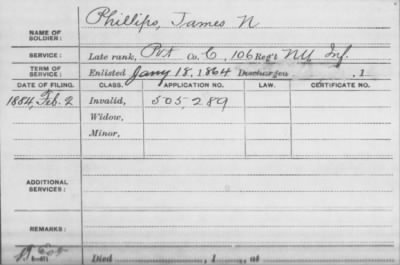 Phillips, James N
NAME OF
SOLDIER:
SERVICE: Late rank, Pvt Co. C, 106 Reg't NY Inf.
TERM OF
SERVICE: Enlisted Jany 18, 1864 Discharged , 1
DATE OF FILING. CLASS. APPLICATION NO. LAW. CERTIFICATE NO.
1884, Feb. 2 Invalid, 505,289
Widow,
Minor,
ADDITIONAL
SERVICES:
REMARKS:
Died , 1 , at